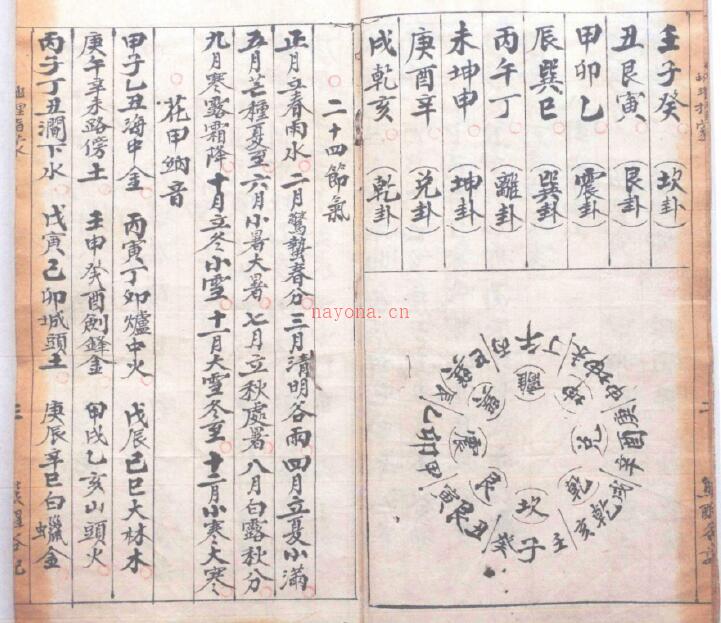 壬子癸（坎卦）
丑艮寅（艮卦）
甲卯乙（震卦）
辰巽巳（巽卦）
丙午丁（離卦）
未坤申（坤卦）
庚酉辛（兑卦）
戌乾亥（乾卦）
丙午丁
未坤申
庚酉辛
戌乾亥
壬子癸
丑艮寅
甲卯乙
辰巽巳
離
坤
兑
乾
坎
艮
震
巽
二十四節氣
正月立春雨水 二月驚蟄春分 三月清明谷雨 四月立夏小滿
五月芒種夏至 六月小暑大暑 七月立秋處暑 八月白露秋分
九月寒露霜降 十月立冬小雪 十一月大雪冬至 十二月小寒大寒
花甲納音
甲子乙丑海中金 丙寅丁卯爐中火 戊辰己巳大林木
庚午辛未路傍土 壬申癸酉劍鋒金 甲戌乙亥山頭火
丙子丁丑澗下水 戊寅己卯城頭土 庚辰辛巳白蠟金
nayona.cn